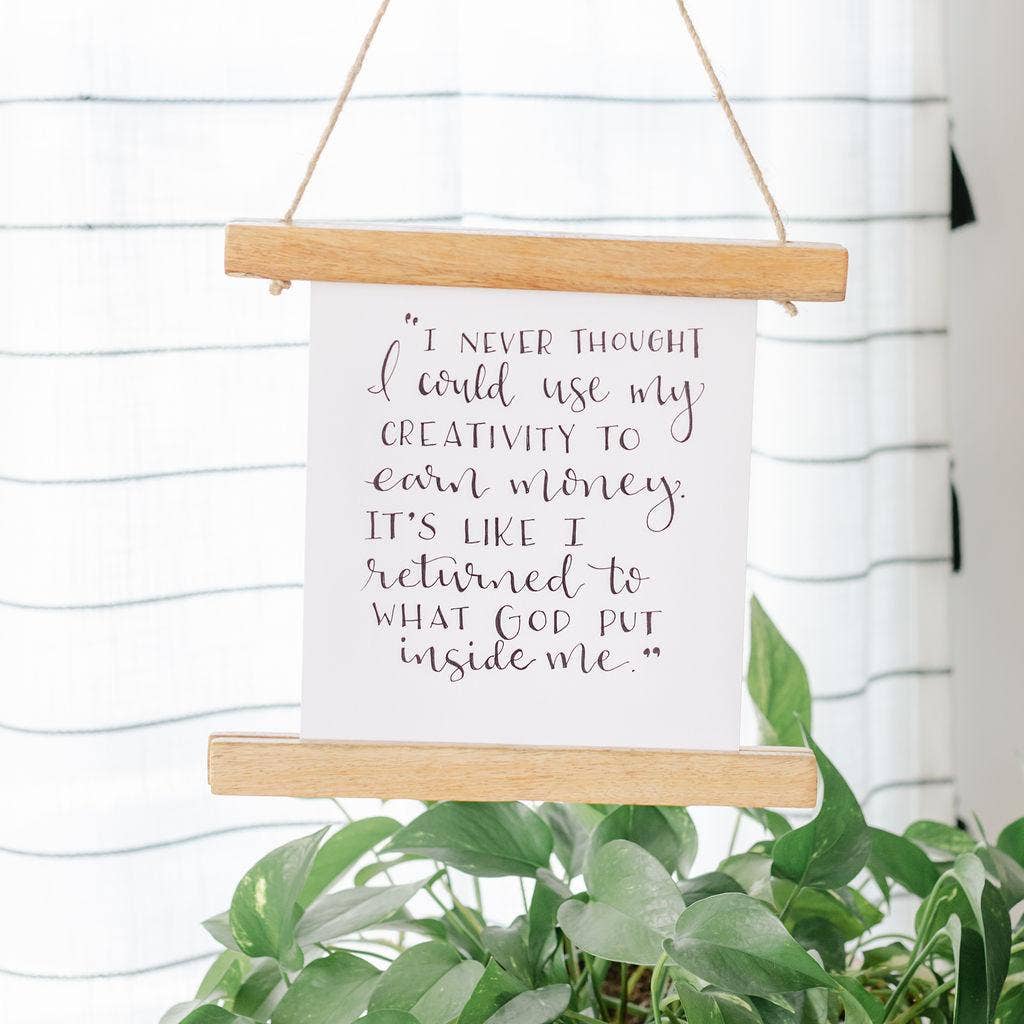 “I NEVER THOUGHT
I could use my
CREATIVITY TO
earn money.
IT'S LIKE I
returned to
WHAT GOD PUT
inside me.”